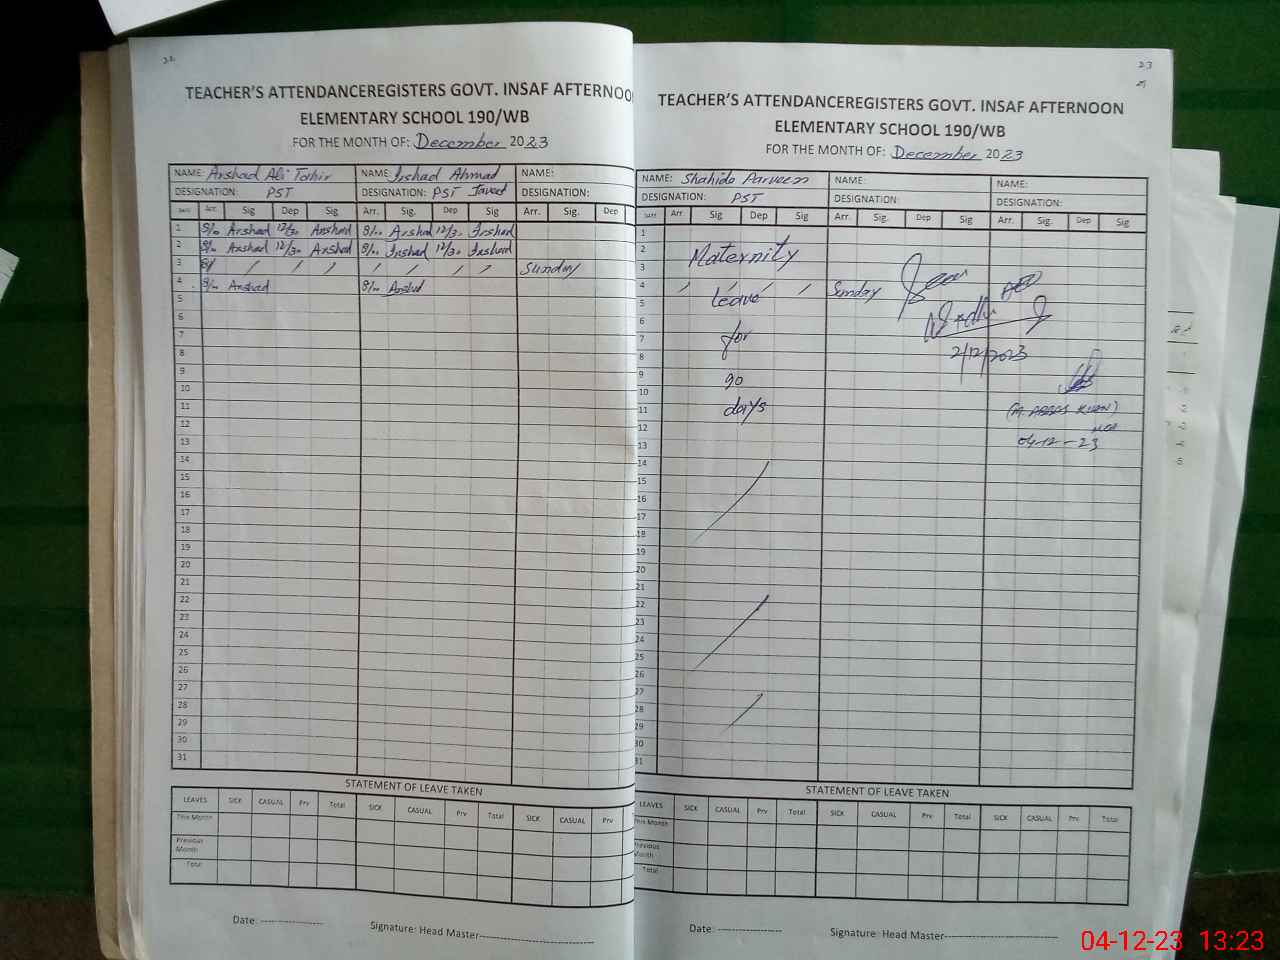 22
TEACHER'S ATTENDANCEREGISTERS GOVT. INSAF AFTERNOO
ELEMENTARY SCHOOL 190/WB
FOR THE MONTH OF: December 2023
NAME: Arshad Ali Tahir NAME: Irshad Ahmad NAME:
DESIGNATION: PST DESIGNATION: PST Javed DESIGNATION:
DATE Arr. Sig Dep Sig Arr. Sig. Dep Sig Arr. Sig. Dep
1 8/00 Arshad 12/30 Arshad 8/00 Arshad 12/30 Irshad
2 8/00 Arshad 12/30 Arshad 8/00 Irshad 12/30 Irshad
3 Sunday
4 8/00 Arshad 8/00 Arshad
5
6
7
8
9
10
11
12
13
14
15
16
17
18
19
20
21
22
23
24
25
26
27
28
29
30
31
STATEMENT OF LEAVE TAKEN
LEAVES SICK CASUAL Prv Total SICK CASUAL Prv Total SICK CASUAL Prv
This Month
Previous
Month
Total
Date: ------------------ Signature: Head Master------------------------------
23
TEACHER'S ATTENDANCEREGISTERS GOVT. INSAF AFTERNOON
ELEMENTARY SCHOOL 190/WB
FOR THE MONTH OF: December 2023
NAME: Shahida Parveen NAME: NAME:
DESIGNATION: PST DESIGNATION: DESIGNATION:
DATE Arr. Sig Dep Sig Arr. Sig. Dep Sig Arr. Sig. Dep Sig
1
2 Maternity
3
4 Sunday
5 leave
6
7 for
8 2/12/2023
9 90
10
11 days
12
13 04-12-23
14
15
16
17
18
19
20
21
22
23
24
25
26
27
28
29
30
31
STATEMENT OF LEAVE TAKEN
LEAVES SICK CASUAL Prv Total SICK CASUAL Prv Total SICK CASUAL Prv Total
This Month
Previous
Month
Total
Date: ------------------ Signature: Head Master------------------------------
04-12-23 13:23